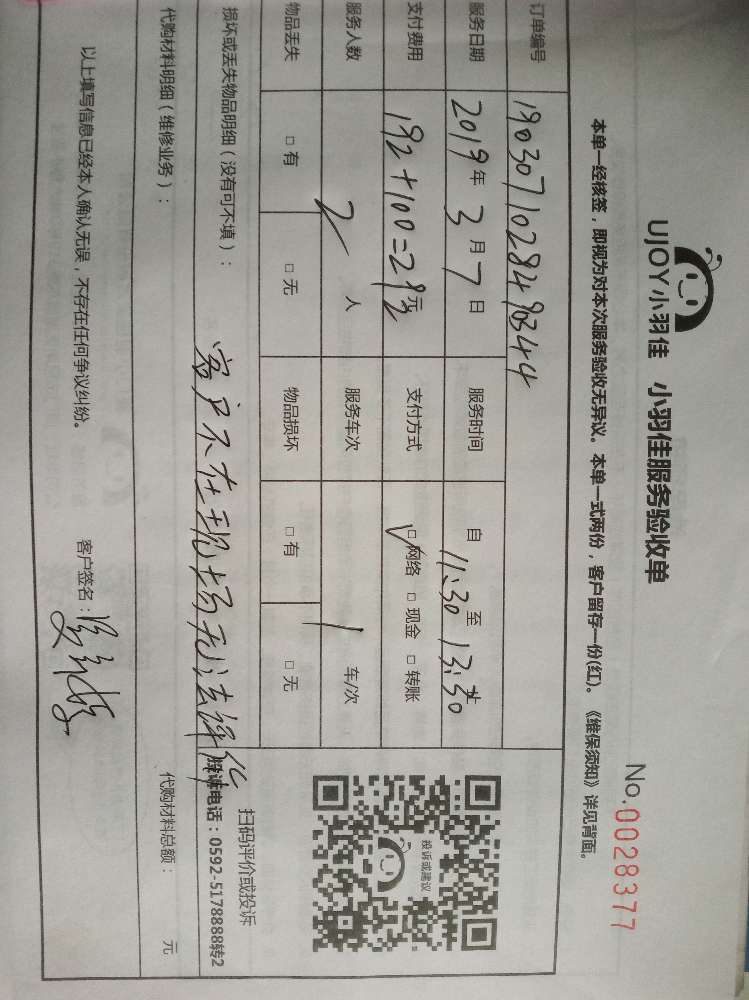 UJOY小羽佳 小羽佳服务验收单
No.0028377
本单一经核签，即视为对本次服务验收无异议。本单一式两份，客户留存一份(红)。《维保须知》详见背面。
订单编号 1903071028490344
服务日期 2019年3月7日 服务时间 自11:30至13:30止
支付费用 192+100=292元 支付方式 ☑网络 □现金 □转账
服务人数 2人 服务车次 1车/次
物品丢失 □有 □无 物品损坏 □有 □无
投诉或建议
扫码评价或投诉
投诉电话：0592-5178888转2
损坏或丢失物品明细（没有可不填）：
客户不在现场无法评价
代购材料明细（维修业务）： 代购材料总额： 元
以上填写信息已经本人确认无误，不存在任何争议纠纷。 客户签名：